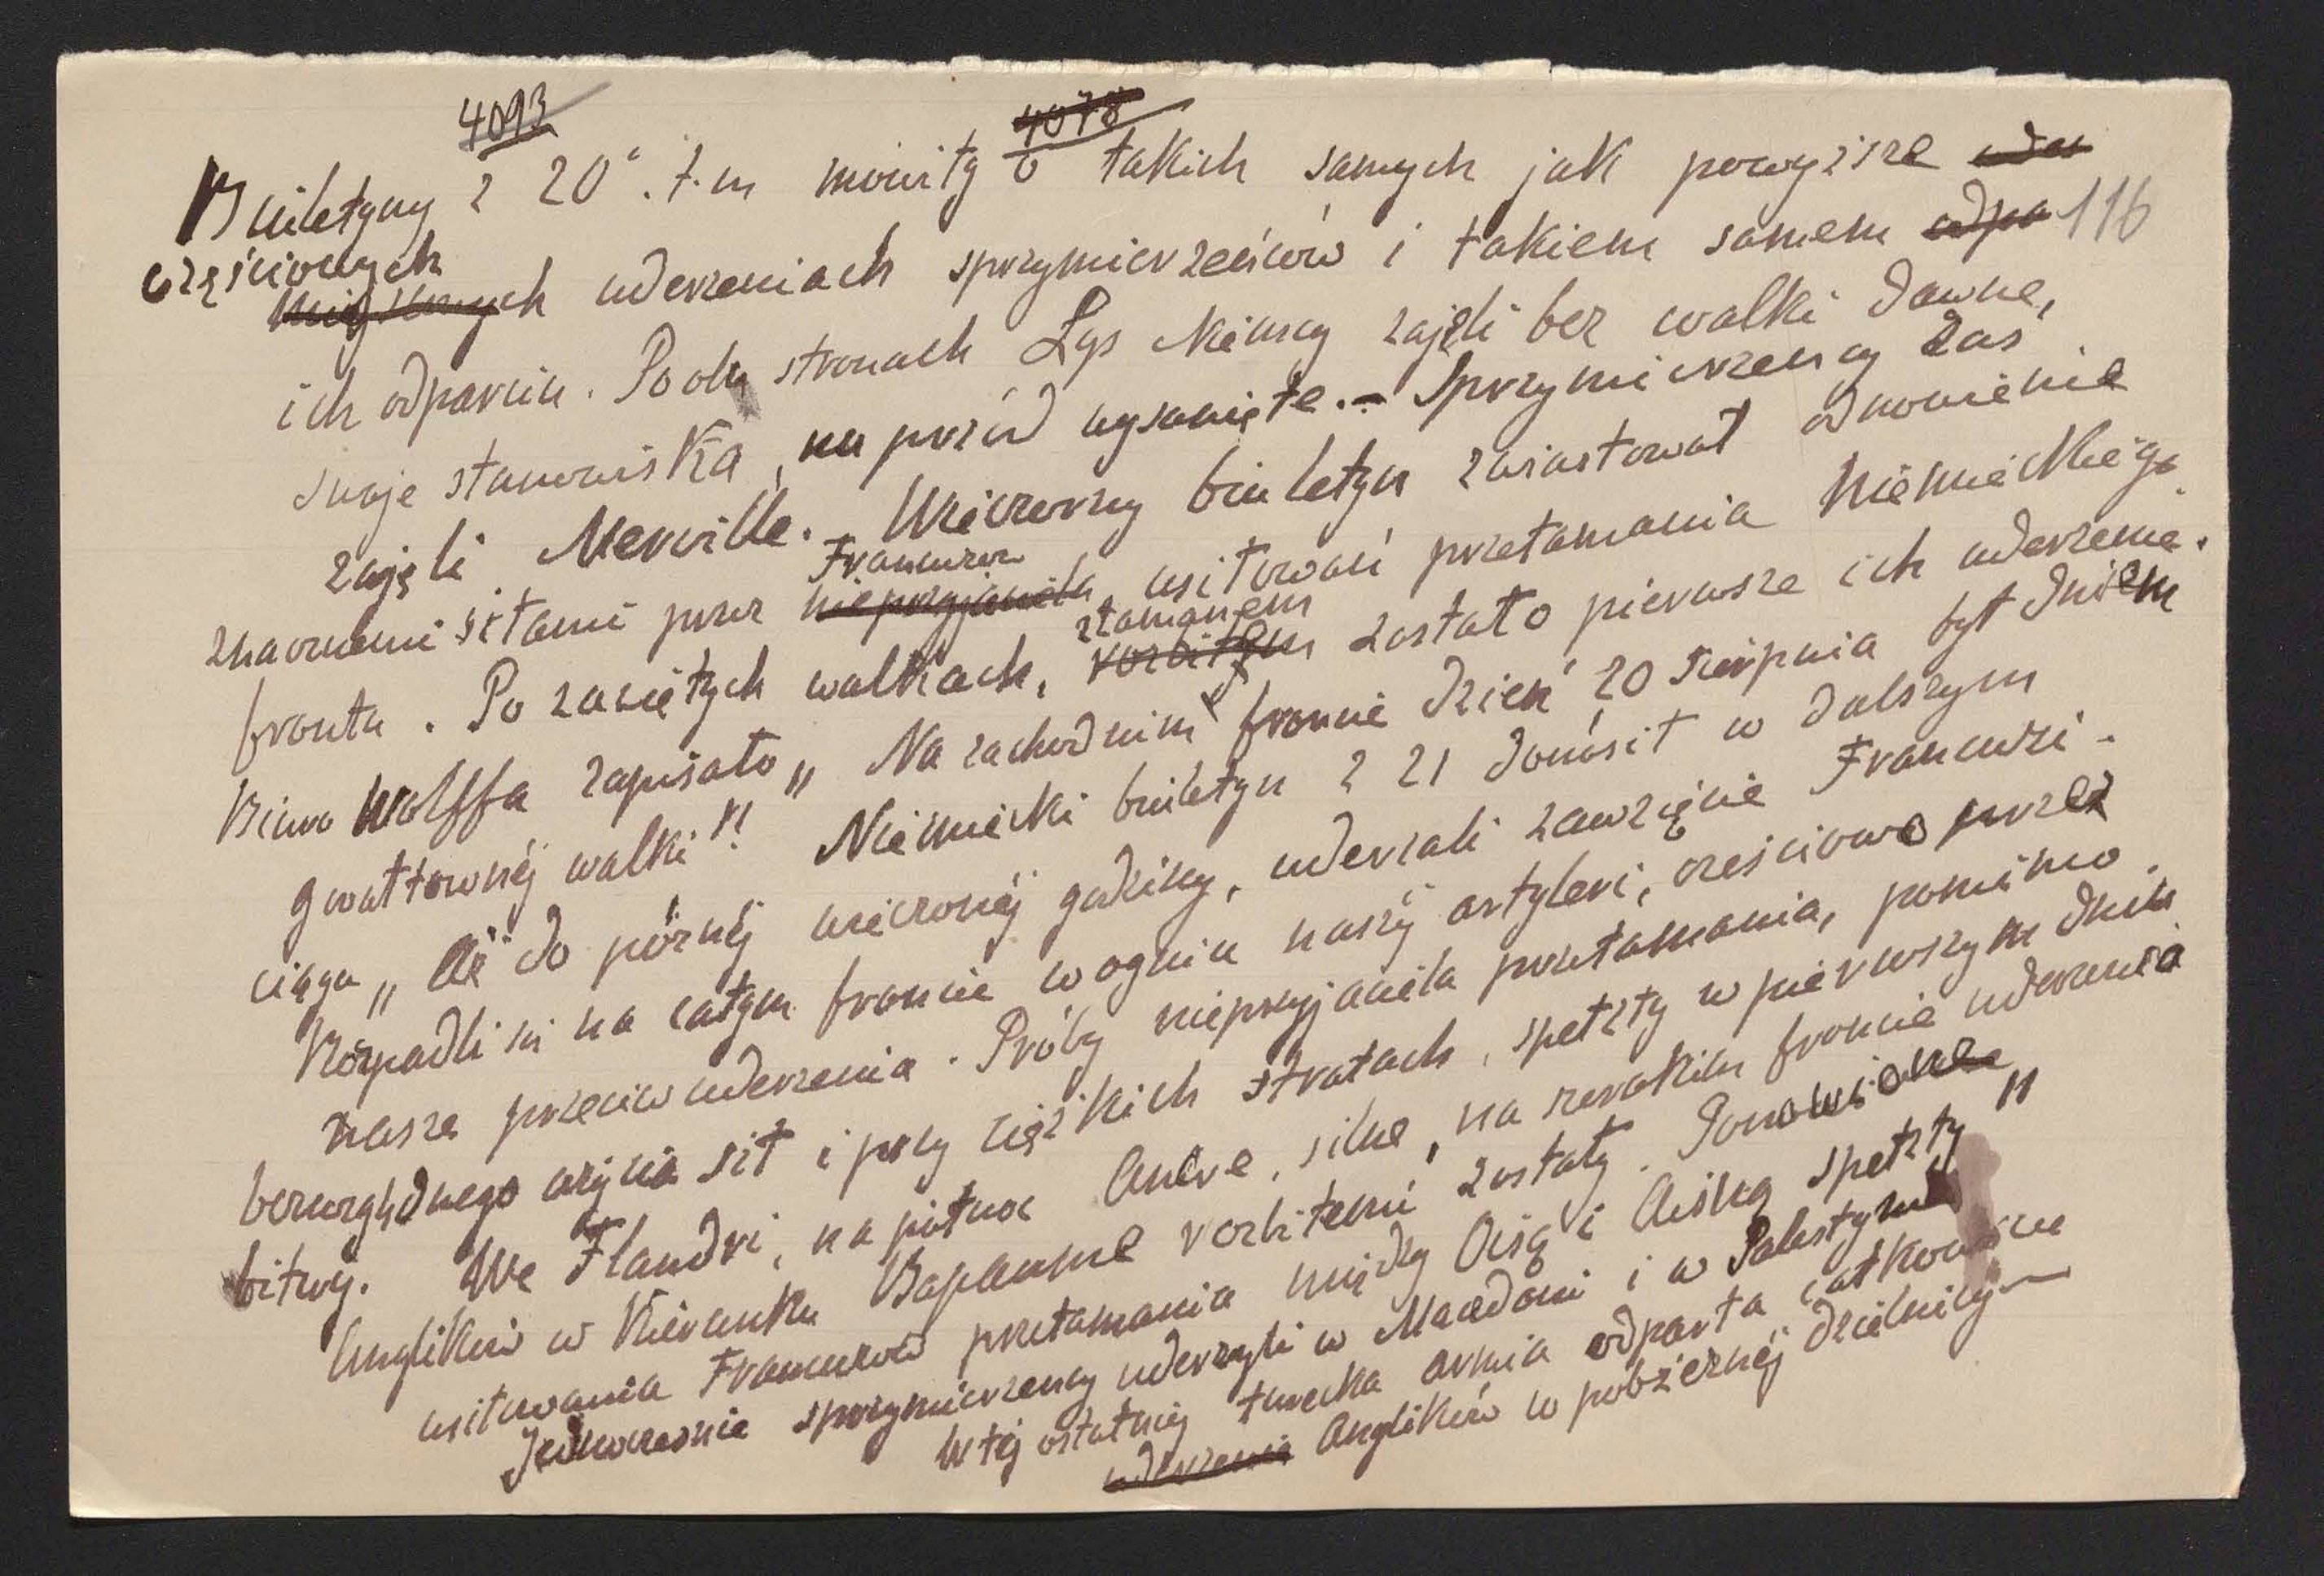 4093 4078
Biuletyny z 20. t.m mówiły o takich samych jak powyższe
116
częściowych uderzeniach sprzymierzeńców i takiem samem odpa
ich odparciu. Po obu stronach Lys Niemcy zajęli bez walki dawne,
swoje stanowiska, na przód wysunięte. – Sprzymierzeńcy zaś
zajęli Merville. – Wieczorny biuletyn zwiastował odnowienie
Francuzów
znacznemi siłami przez nieprzyjaciela, usiłowań przełamania niemieckiego
złamanem
frontu. Po zaciętych walkach, rozbitem zostało pierwsze ich uderzenie.
Biuro Wolffa zapisało „Na zachodnim froncie dzień 20 sierpnia był dniem
gwałtownéj walki"! Niemiecki biuletyn z 21 donósił w dalszym
ciągu „Aż do póżnéj wieczornéj godziny, uderzali zawzięcie Francuzi.
Rozpadli się na całym froncie w ogniu naszéj artyleri, cześciowo przez
nasze przeciwuderzenia. Próby nieprzyjaciela przełamania, pomimo
bezwzglydnego użycia sił i przy ciężkich stratach, spełzły w pierwszym dniu
bitwy. We Flandri, na północ Ancre, silne, na szerokim froncie uderzenia
Anglików w kierunku Bapaume rozbitemi zostały. Ponowione
usiłowania Francuzów przełamania między Oisą i Aisną spełzły"
Jednocześnie sprzymierzeńcy uderzyli w Macedoni i w Palestynie
W téj ostatniéj turecka armia odparła całkowicie
uderzenia Anglików w pobrzeżnéj dzielnicy –